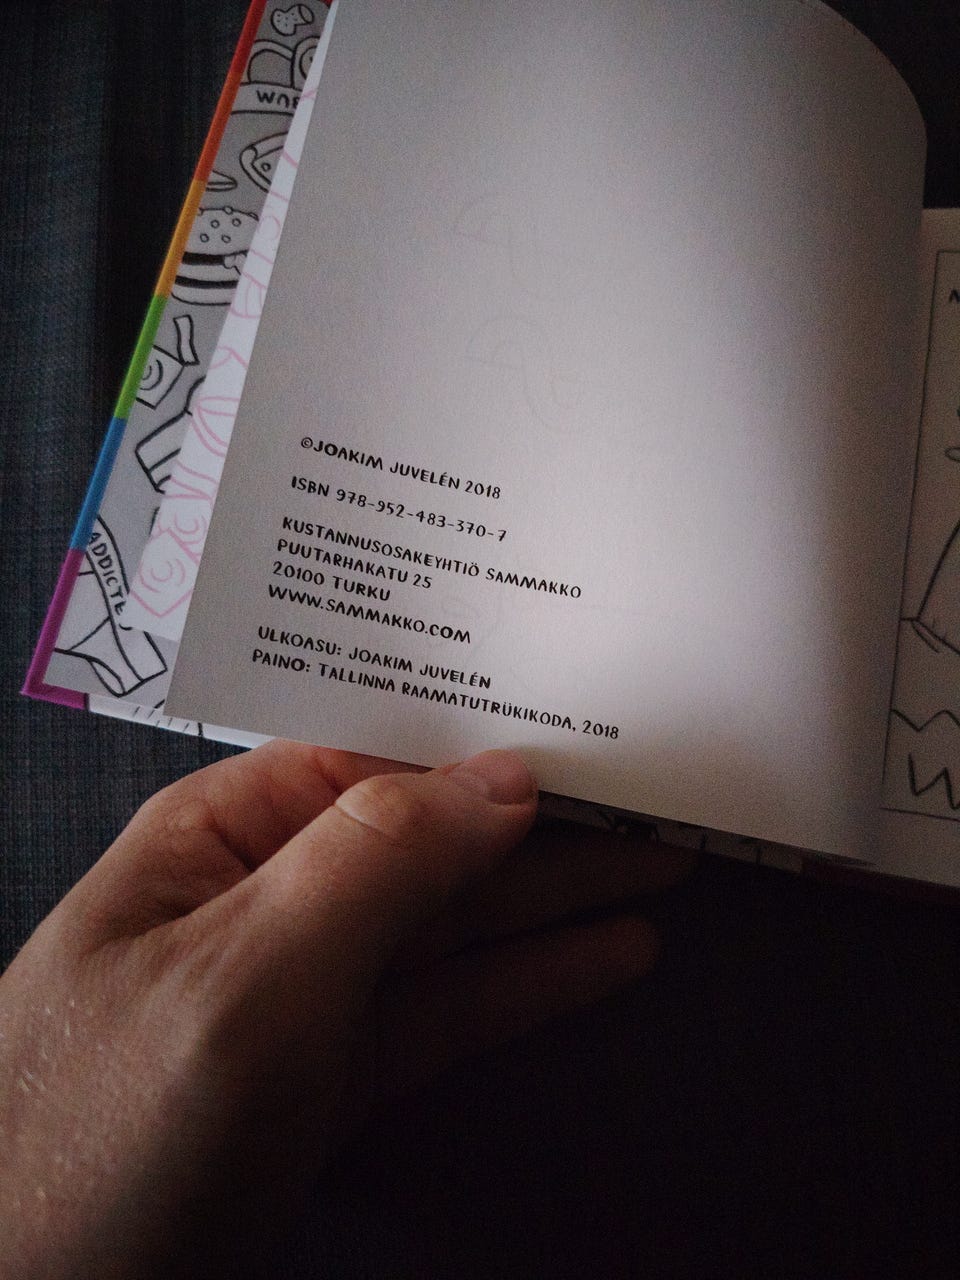 ©JOAKIM JUVELÉN 2018
ISBN 978-952-483-370-7
KUSTANNUSOSAKEYHTIÖ SAMMAKKO
PUUTARHAKATU 25
20100 TURKU
WWW.SAMMAKKO.COM
ULKOASU: JOAKIM JUVELÉN
PAINO: TALLINNA RAAMATUTRÜKIKODA, 2018